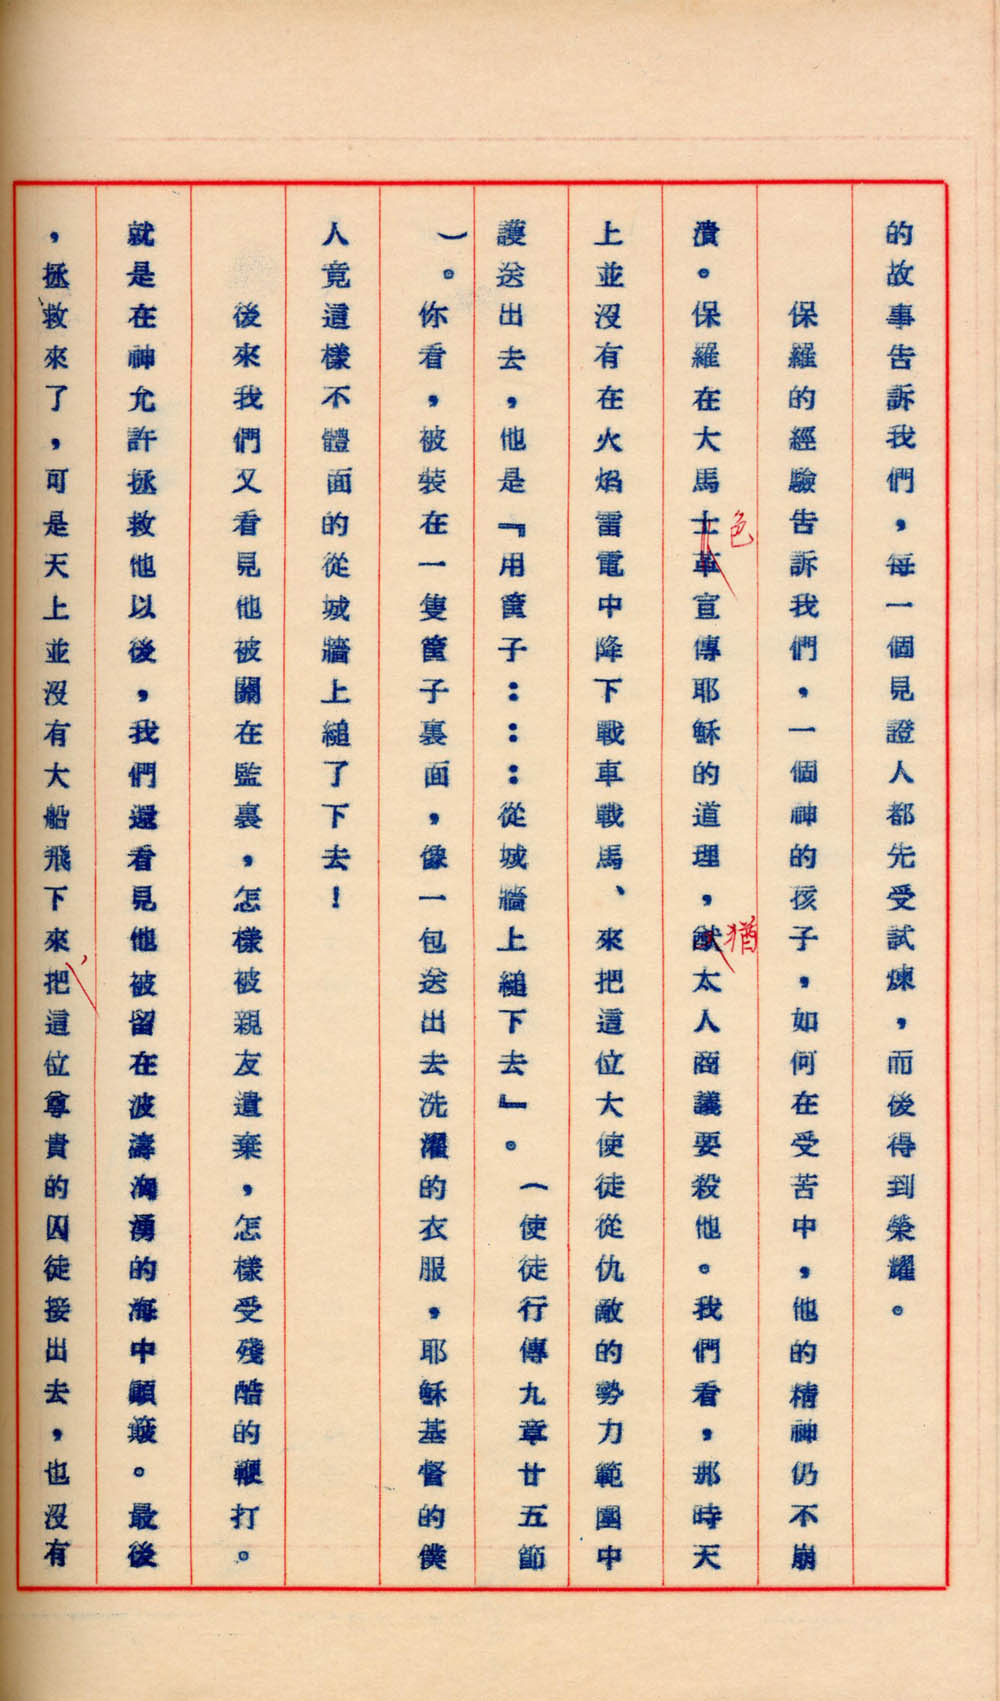 的故事告訴我們，每一個見證人都先受試煉，而後得到榮耀。
保羅的經驗告訴我們，一個神的孩子，如何在受苦中，他的精神仍不崩
潰。保羅在大馬士革宣傳耶穌的道理，猷太人商議要殺他。我們看，那時天
色
猶
上並沒有在火焰雷電中降下戰車戰馬、來把這位大使徒從仇敵的勢力範圍中
護送出去，他是『用筐子：：：從城牆上縋下去』。（使徒行傳九章廿五節
）。你看，被裝在一隻筐子裏面，像一包送出去洗濯的衣服，耶穌基督的僕
人竟這樣不體面的從城牆上縋了下去！
後來我們又看見他被關在監裏，怎樣被親友遺棄，怎樣受殘酷的鞭打。
就是在神允許拯救他以後，我們還看見他被留在波濤洶湧的海中顛簸。最後
，拯救來了，可是天上並沒有大船飛下來把這位尊貴的囚徒接出去，也沒有
，